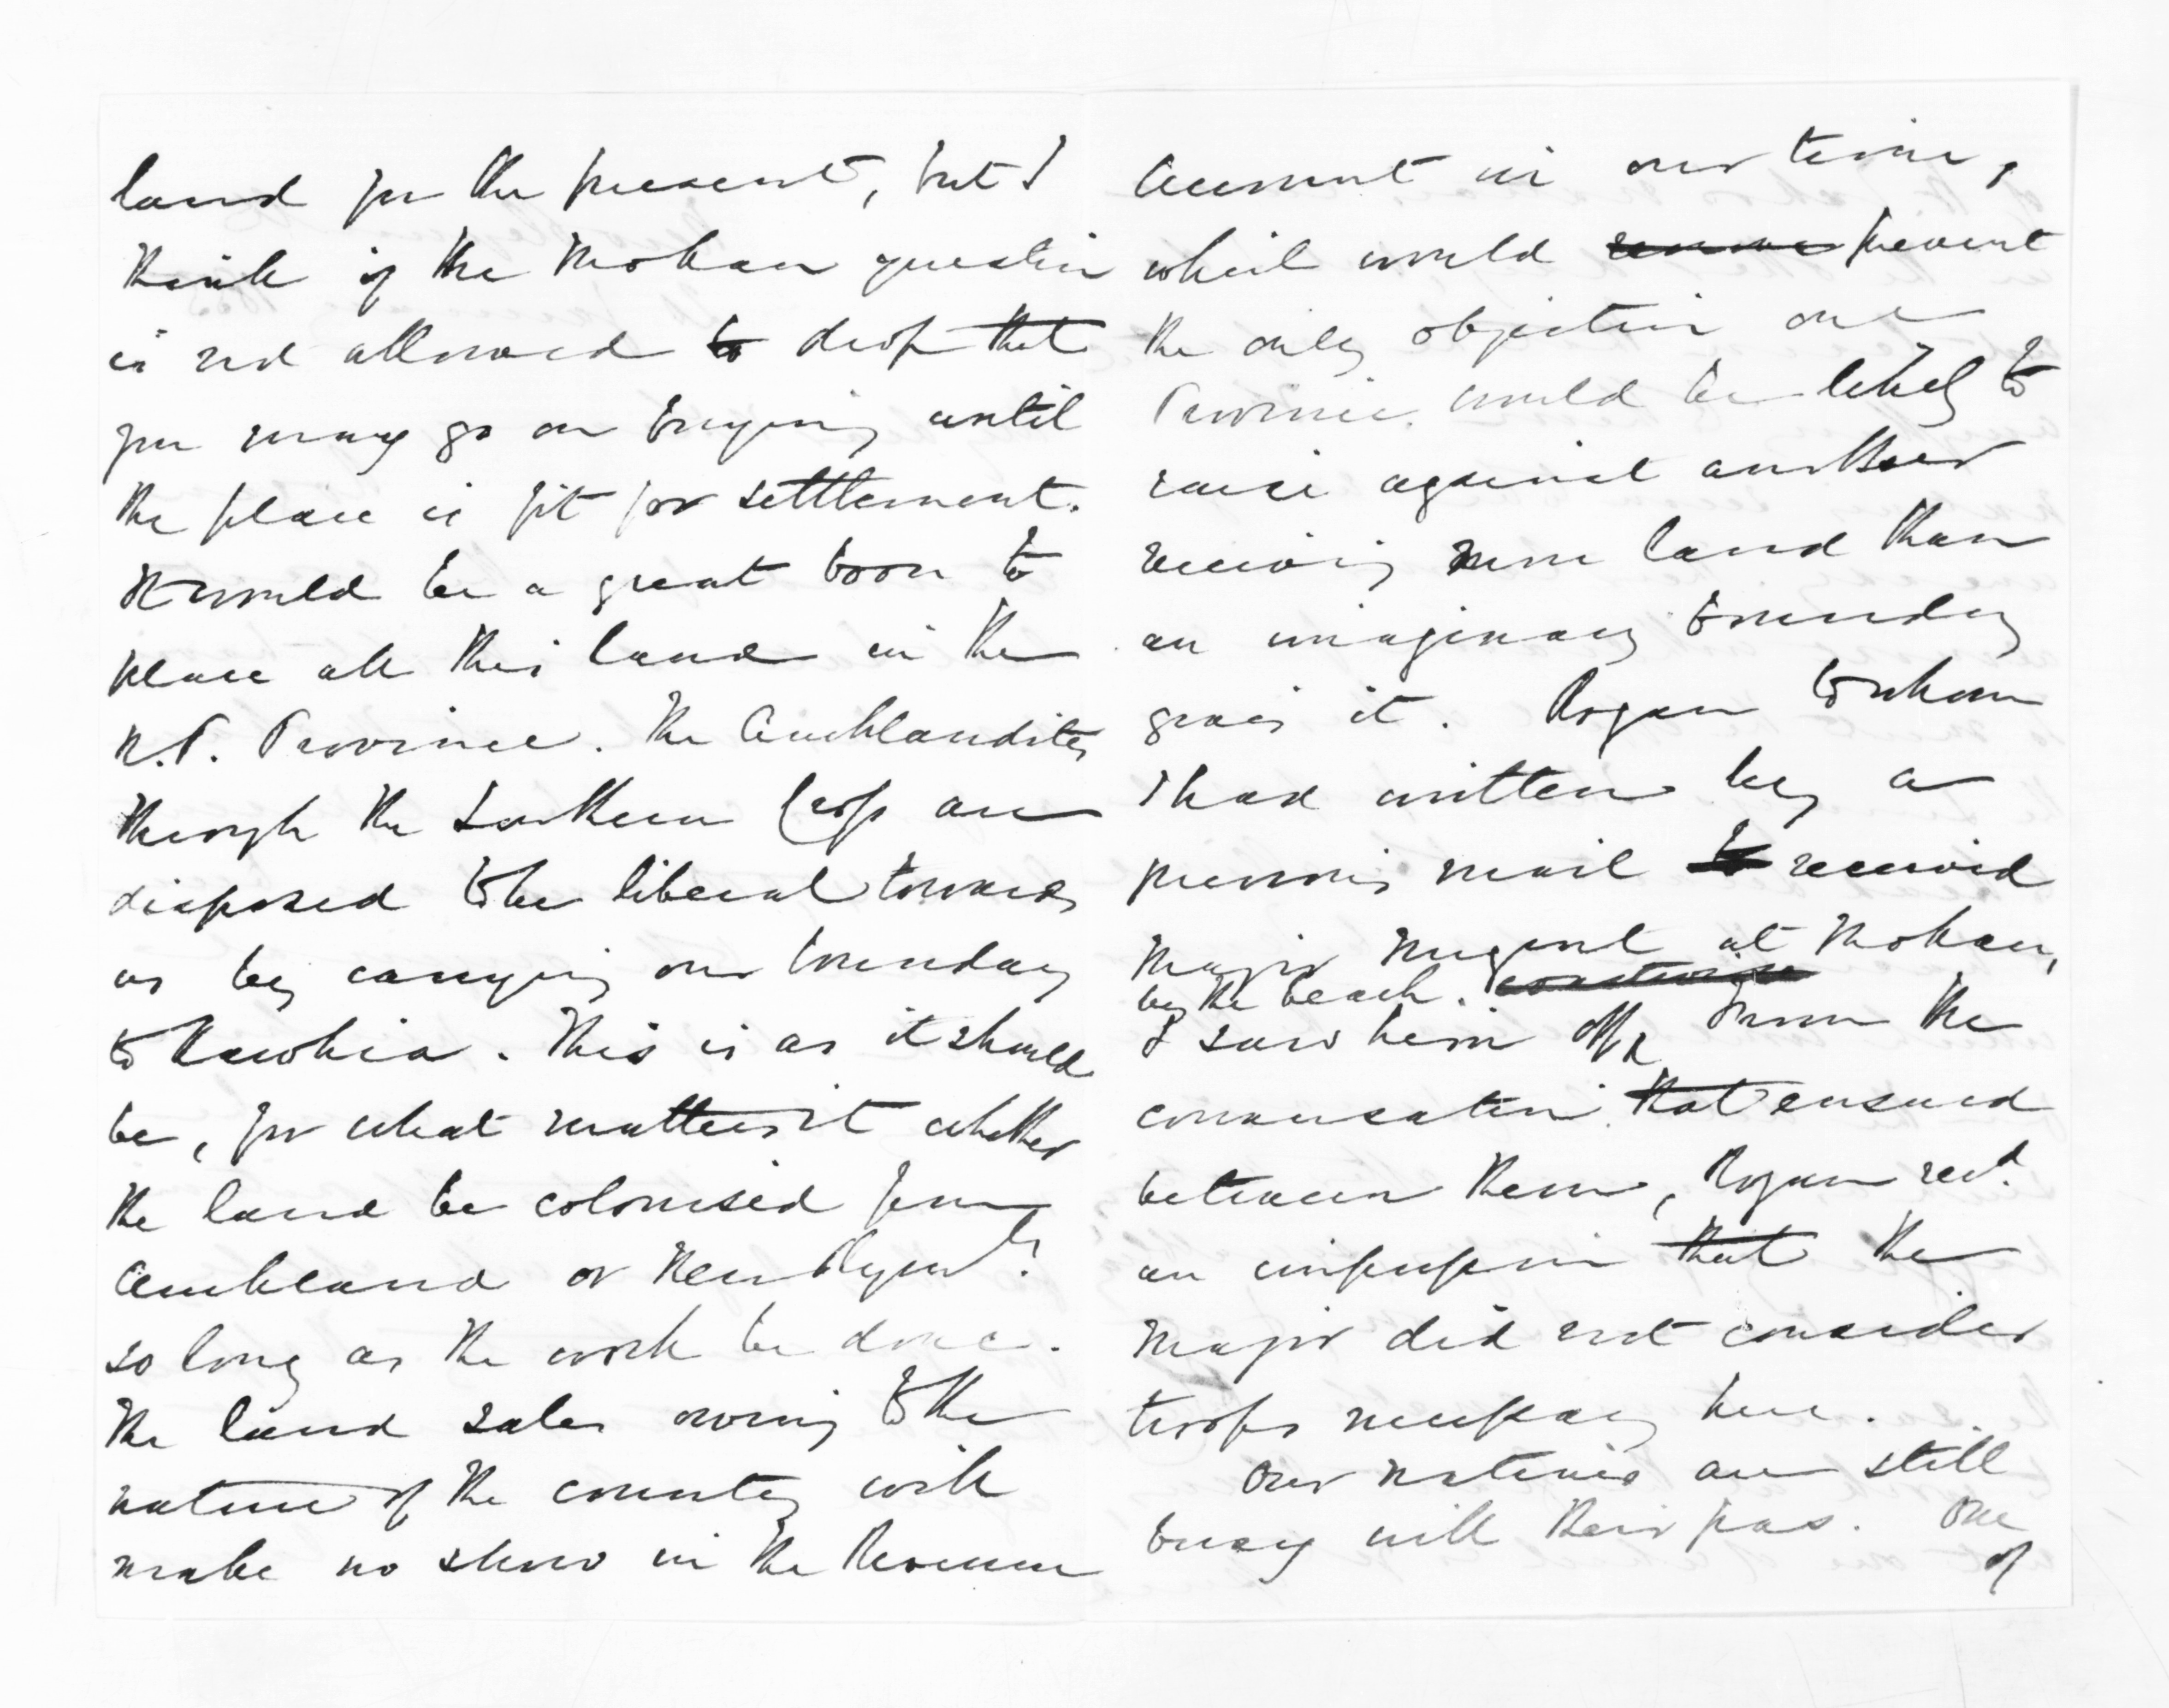 land for the present, but I
think if the Mokau question
is not allowed to drop that
you may go on buying until
the place is fit for settlement.
It would be a great boon to
place all this land in the
N.P. Province. The Aucklandites
through the Southern Cross are
disposed to be liberal towards
us by carrying our boundary
to Kawhia. This is as it should
be, for what matters it whether
the land be colonised from
Auckland or New Plymth?
so long as the work be done.
The land sales owing to the
nature of the country will
make no show in the Revenue
Account in our time,
which would remove prevent
the only objection one
Province would be likely to
raise against another
receiving more land than
an imaginary boundary
gives it. Rogan to whom
I had written by a
previous mail to received
Major Nugent at Mokau,
by the beach.
I saw him off from the
conversation that ensued
between them, Rogan recd.
an impression that the
Major did not consider
troops necessary here.
Our natives are still
busy with their pas. One
of